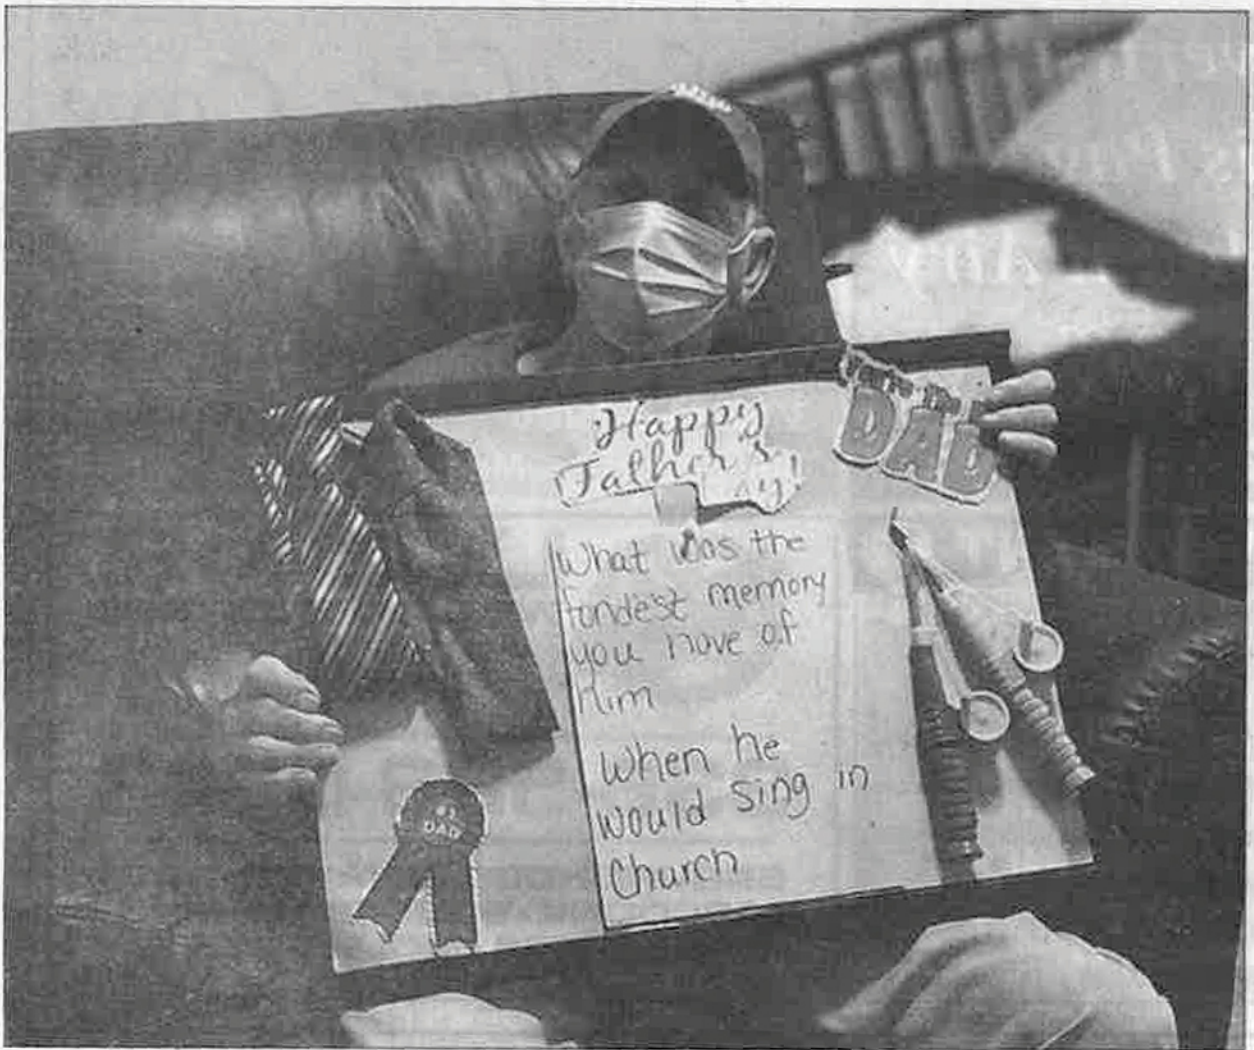 Happy
Father's
Day!
DAD
What was the
fondest memory
you have of
him
When he
would sing in
Church
#1
DAD